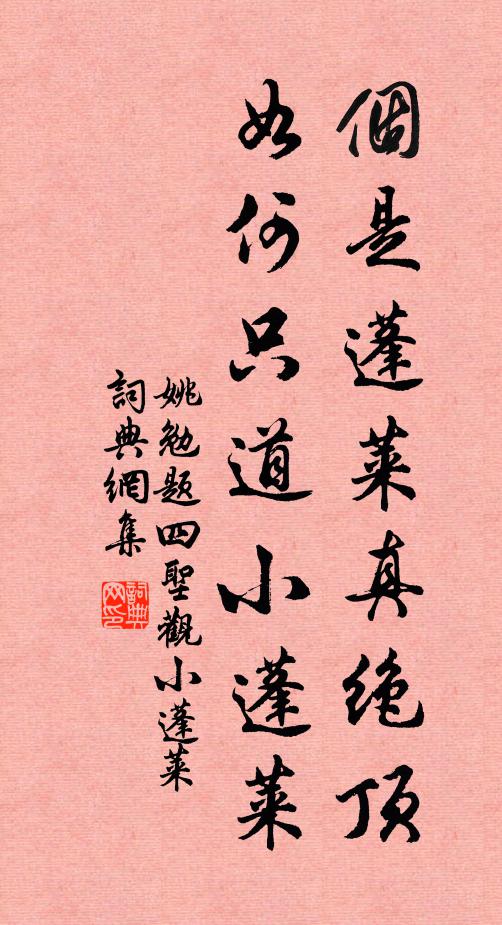 個是蓬萊真绝顶
如何只道小蓬萊
姚勉题四聖觀小蓬萊
詞典網集
詞典網印